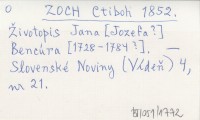 0 ZOCH Ctiboh 1852.
Životopis Jana [Jozefa?]
Bencúra [1728-1784?]. —
Slovenské Noviny (Vídeň) 4,
nr 21.